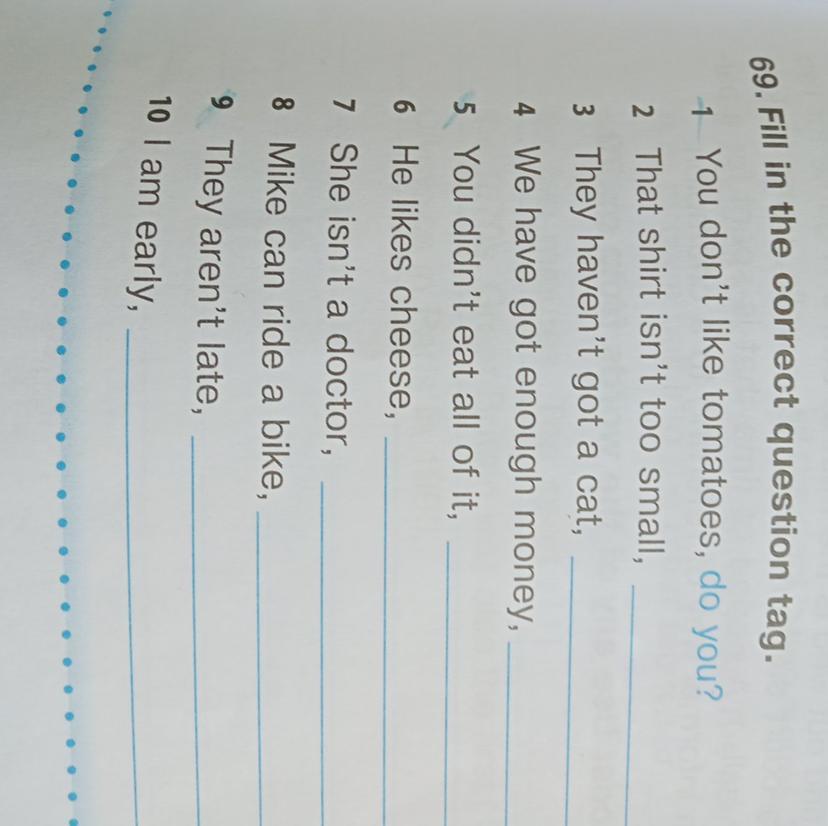 69. Fill in the correct question tag.
1 You don't like tomatoes, do you?
2 That shirt isn't too small,
3 They haven't got a cat,
4 We have got enough money,
5 You didn't eat all of it,
6 He likes cheese,
7 She isn't a doctor,
8 Mike can ride a bike,
9 They aren't late,
10 I am early,